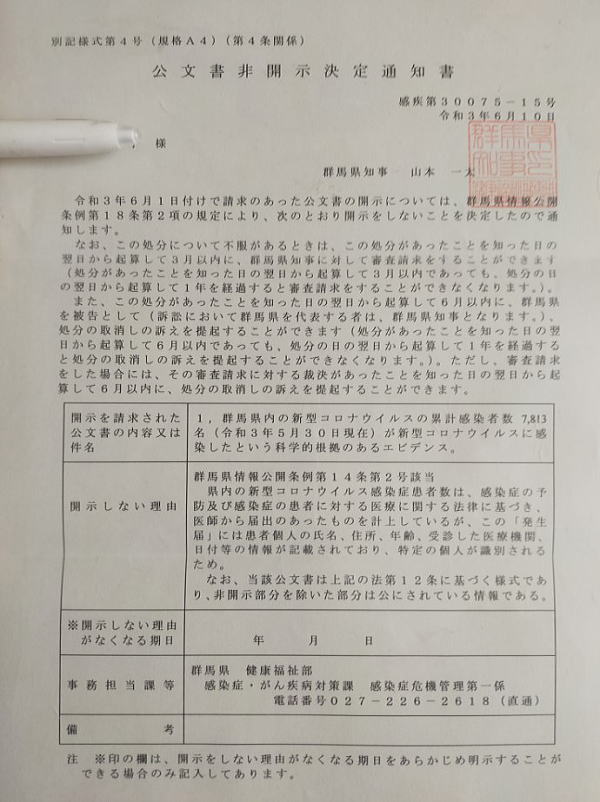 別記様式第4号（規格A4）（第4条関係）
公文書非開示決定通知書
感疾第30075－15号
令和3年6月10日
様
群馬県知事　山本　一太
群馬県
知事之印
令和3年6月1日付けで請求のあった公文書の開示については、群馬県情報公開
条例第18条第2項の規定により、次のとおり開示をしないことを決定したので通
知します。
なお、この処分について不服があるときは、この処分があったことを知った日の
翌日から起算して3月以内に、群馬県知事に対して審査請求をすることができます
（処分があったことを知った日の翌日から起算して3月以内であっても、処分の日
の翌日から起算して1年を経過すると審査請求をすることができなくなります。）。
また、この処分があったことを知った日の翌日から起算して6月以内に、群馬県
を被告として（訴訟において群馬県を代表する者は、群馬県知事となります。）、
処分の取消しの訴えを提起することができます（処分があったことを知った日の翌
日から起算して6月以内であっても、処分の日の翌日から起算して1年を経過する
と処分の取消しの訴えを提起することができなくなります。）。ただし、審査請求
をした場合には、その審査請求に対する裁決があったことを知った日の翌日から起
算して6月以内に、処分の取消しの訴えを提起することができます。
開示を請求された
公文書の内容又は
件名
1，群馬県内の新型コロナウイルスの累計感染者数 7,813
名（令和3年5月30日現在）が新型コロナウイルスに感
染したという科学的根拠のあるエビデンス。
開示しない理由
群馬県情報公開条例第14条第2号該当
県内の新型コロナウイルス感染症患者数は、感染症の予
防及び感染症の患者に対する医療に関する法律に基づき、
医師から届出のあったものを計上しているが、この「発生
届」には患者個人の氏名、住所、年齢、受診した医療機関、
日付等の情報が記載されており、特定の個人が識別される
ため。
なお、当該公文書は上記の法第12条に基づく様式であ
り、非開示部分を除いた部分は公にされている情報である。
※開示しない理由
がなくなる期日
年　月　日
事務担当課等
群馬県　健康福祉部
感染症・がん疾病対策課　感染症危機管理第一係
電話番号027－226－2618（直通）
備考
注　※印の欄は、開示をしない理由がなくなる期日をあらかじめ明示することが
できる場合のみ記入してあります。